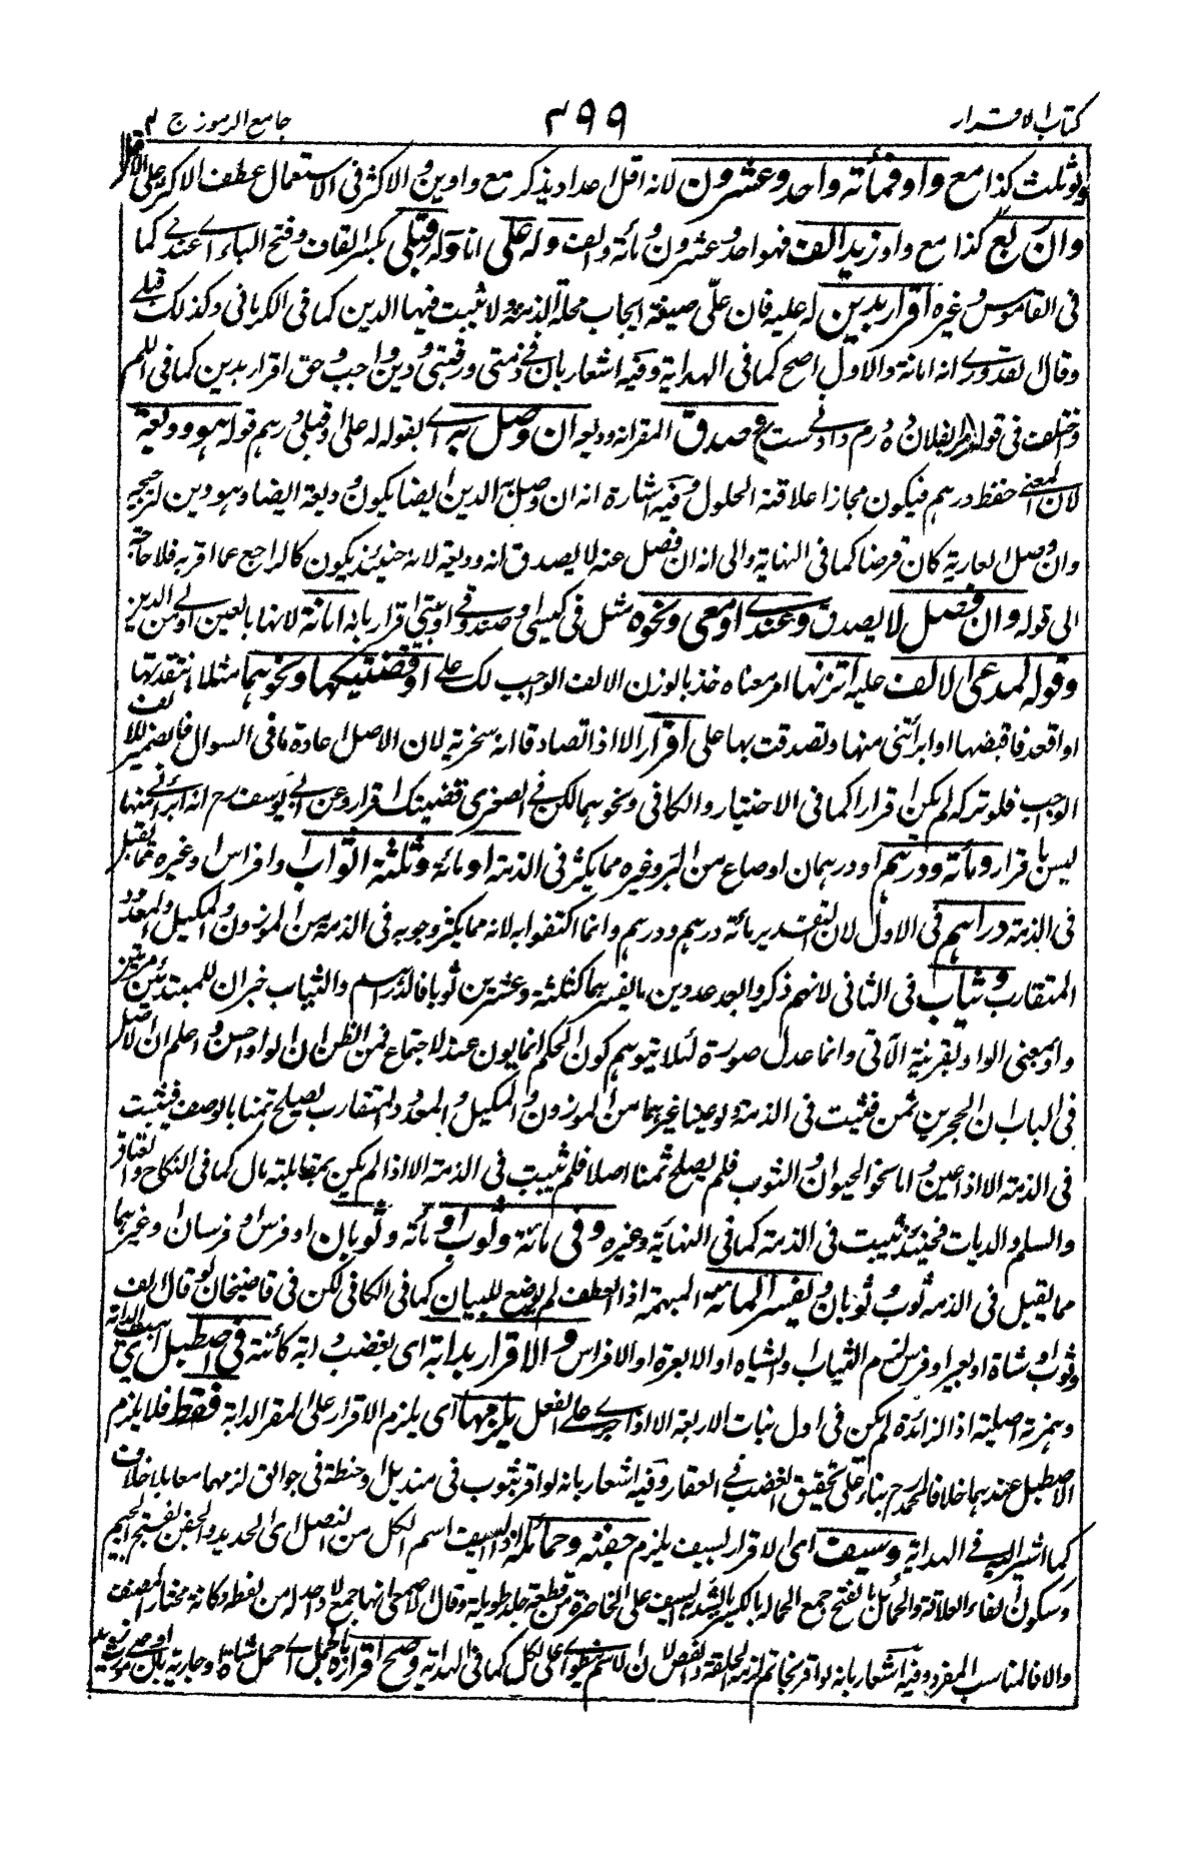 كتاب الاقرار ٣٩٩ جامع الرموز ج ٢
ولو ثلث كذا مع واو فمائة واحد وعشرون لانه اقل اعداد يذكر مع واوين والاكثر فى الاستعمال عطف الاكثر على الاقل
وان ربع كذا مع واو زيد الف فهو احد وعشرون ومائة والف وله على اناوله وقبلى بكسر القاف وفتح الباء اى عندى كما
فى القاموس وغيره اقرار بدين له عليه فان علّى صيغة ايجاب محلة الذمة ولا يثبت فيها الدين كما فى الكرمانى وكذلك قبلى
وقال القدورى انه امانة والاول اصح كما فى الهداية وفيه اشعار بان فى ذمتى ورقبتى ودين واجب وحق اقرار بدين كما فى
واختلف فى قوله لفلان ده درم دادنى ست وصدق المقر انه وديعة ان وصل به اى بقوله له على او قبلى درهم قوله هو وديعة
لان المعنى حفظ درهم فيكون مجازا علاقته الحلول وفيه اشارة انه ان وصل به الدين ايضا يكون وديعة ايضا وهو دين لترجحه
وان وصل العارية كان قرضا كما فى النهاية والى انه ان فصل عنه لا يصدق انه وديعة لانه حينئذ يكون كالراجع عما اقر به فلا حاجة
الى قوله وان فصل لا يصدق وعندى او معى ونحوه مثل فى كيسى او صندوقى او بيتى اقرار بانه امانة لانها بالعين اولى من الدين
وقوله لمدعى الالف عليه اتزنها امر معناه خذ بالوزن الالف الواجب لك على او قضيتكها ونحوهما مثلا انتقدتها
او اقعد فاقبضها او ابرأتنى منها وتصدقت بها على اقرار الا اذا تصادقا انه سخرية لان الاصل اعادة ما فى السوال فالضمير للالف
الواجب فلو تركه لم يكن اقرارا كما فى الاختيار والكافى ونحوهما لكن فى الصغرى قضيتك اقرار وعن ابى يوسف رح انه ابرأتنى منها
ليس باقرار ومائة ودرهم او درهمان او صاع من البر وغيره مما يكثر فى الذمة او مائة وثلثة اثواب وافراس وغيره مما يقبل
فى الذمة دراهم فى الاول لان التقدير مائة درهم ودرهم وانما اكتفوا به لانه مما يكثر وجوبه فى الذمة من الموزون والمكيل والمعدود
المتقارب وثياب فى الثانى لانهم ذكروا بعد عددين ما يفسرهما كثلثة وعشرين ثوبا فالدراهم والثياب خبران للمبتدئين
واو بمعنى الواو بقرينة الآتى وانما عدل صورة لئلا يتوهم كون الحكم انما يكون عند الاجتماع فمن الظن ان الواو احسن واعلم ان الاصل
فى الباب ان الحجرين ثمن فيثبت فى الذمة ولو عينا غيرهما من الموزون والمكيل والمعدود المتقارب يصلح ثمنا بالوصف فيثبت
فى الذمة الا اذا عين واما نحو الحيوان والثوب فلم يصلح ثمنا اصلا فلم يثبت فى الذمة الا اذا لم يكن بمقابلة مال كما فى النكاح والعتاق
والسلم والديات فحينئذ يثبت فى الذمة كما فى النهاية وغيره وفى مائة وثوب او مائة وثوبان او فرس او فرسان وغيرهما
مما يقبل فى الذمة ثوب وثوبان ويفسر المائة المبهمة اذ العطف لم يوضع للبيان كما فى الكافى لكن فى قاضيخان لو قال الف
وثوب او شاة او بعير او فرس لزم الثياب والشياه او الابعرة او الافراس والاقرار بدابة اى بغصب دابة كائنة فى اصطبل اى بيت الدابة
وهمزته اصلية اذ الزائدة لم يكن فى اول بنات الاربعة الا اذا جرى على الفعل يلزمها اى يلزم الاقرار على المقر الدابة فقط فلا يلزم
الاصطبل عندهما خلافا لمحمد رح بناء على تحقيق الغصب فى العقار وفيه اشعار بانه لو اقر بثوب فى منديل او حنطة فى جوالق لزمهما معا بلا خلاف
كما اشير اليه فى الهداية وسيف اى الاقرار بسيف يلزم جفنه وحمائله اذ السيف اسم الكل من النصل اى الحديد والجفن بفتح الجيم
وسكون الفاء العلاقة والحمائل بالفتح جمع الحمالة بالكسر ما يشد به السيف على الخاصرة من قطعة جلد طويلة وقال الاصمعى انها جمع لا واحد له من لفظه وكانه مختار المصنف
والا فالمناسب المفرد وفيه اشعار بانه لو اقر بخاتم لزمه الحلقة والفص لان الاسم ينطوى على الكل كما فى الهداية وصح اقراره بالحمل اى حمل شاة او جارية بان